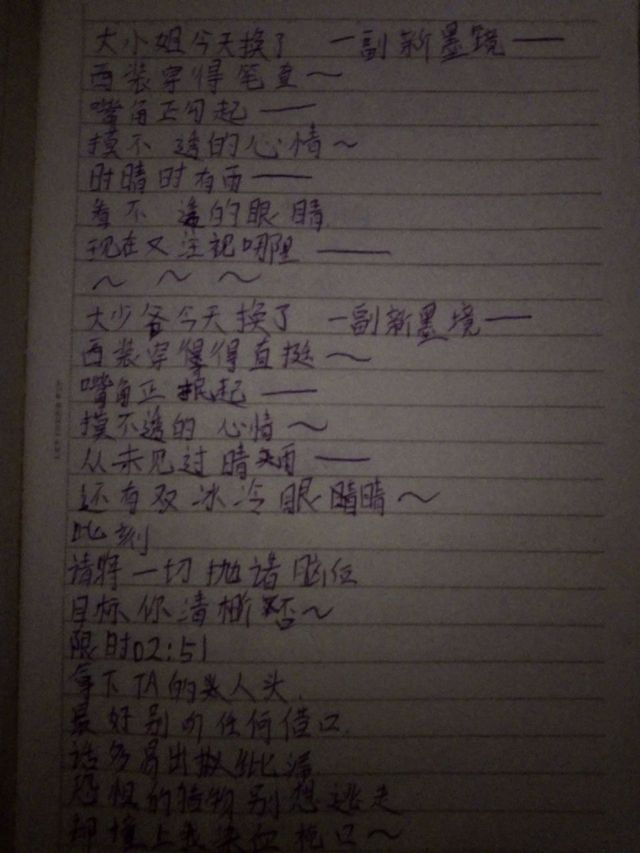 大小姐今天换了 一副新墨镜——
西装穿得笔直～
嘴角正勾起——
摸不透的心情～
时晴时有雨——
看不透的眼睛
现在又注视哪里——
～ ～ ～
大少爷今天换了 一副新墨境——
西装穿得直挺～
嘴角正抿起——
摸不透的心情～
从未见过晴雨——
还有双冰冷眼睛～
此刻
请将一切抛诸脑后
目标你清晰否～
限时02:51
拿下TA的人头.
最好别听任何借口.
话多易出纰漏
别想逃走
却撞上我染血枪口～